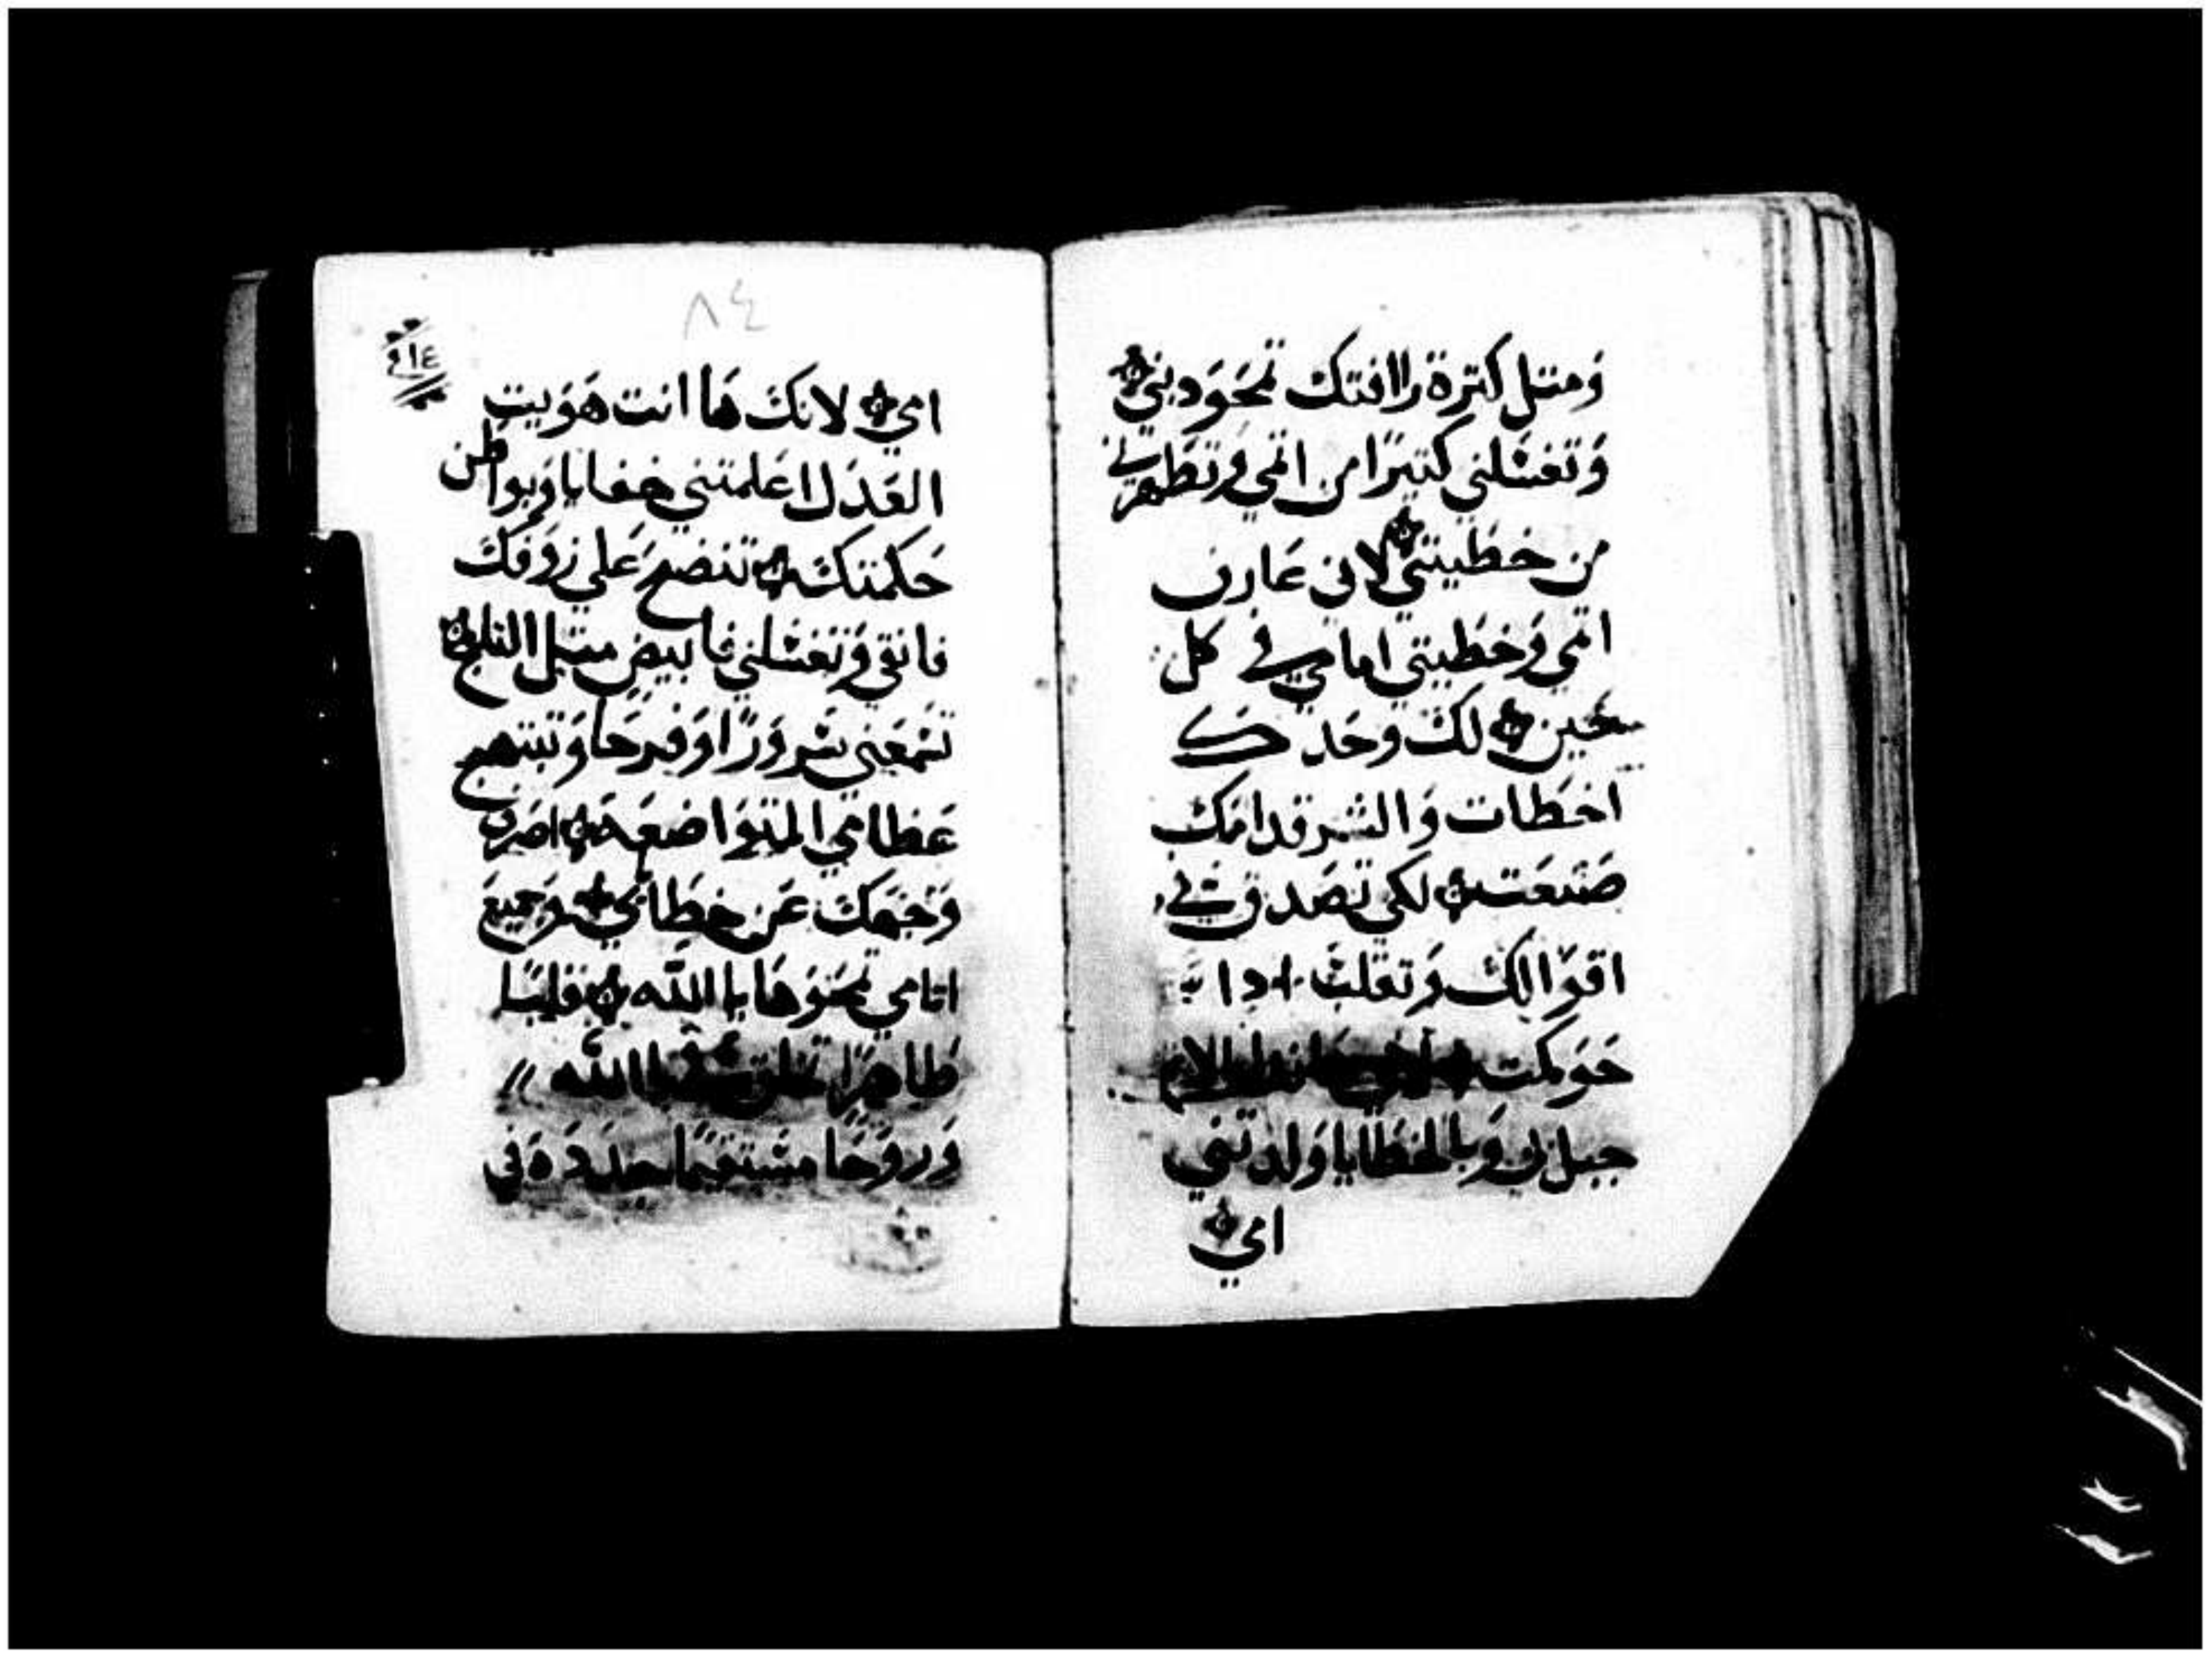 وَمتل كترة راافتك تمحوَ دبني
وَتغسَلني كتيرًا من اتمي وَتطَهرني
من خطَيتي لاني عَارف
اتمي وَخطَيتي امامي في كل
حَين لكَ وحَدك
اخطَات وَالشر قدامَك
صَنعَت لكي تصَدق في
اقوَالك وَتغلبَ ادا
حَوَكمت لاني هَا اندا بالاتم
حبل بي وَبالخطَايا وَلدتني
امي
٨٤
امي لانكَ هَا انت هَوَيت
العَدَل اعَلمتني خفايا وَبواطن
حَكمتكَ تنضح عَلي زوَفكَ
فانقي وَتغسَلني فابيض متل التلج
تسَمعَني سَروَرًا وَفرحَا وَتبتهج
عَظامي المتوَاضعَة اصَرف
وَجهَك عَن خطَاياي وَجميعَ
اتامي تمحَوهَا يا اللّه قلبًا
طَاهرًا اخلق في يا اللّه
وَروَحَا مستقيمًا جدَدَه في